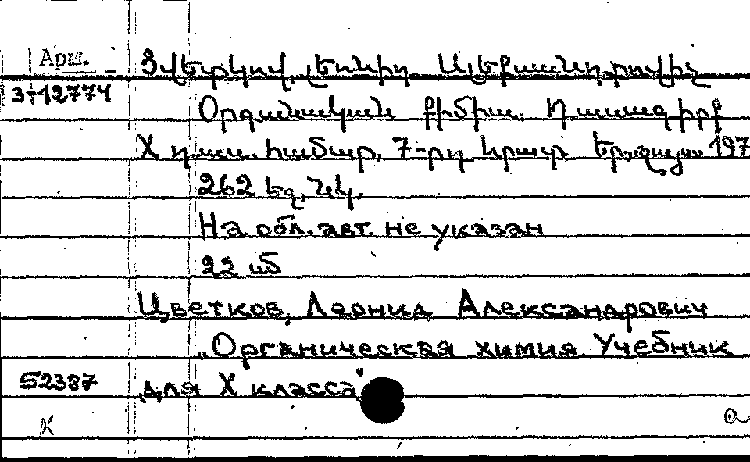 Арм.
3+12774
Ցվետկով, Լեոնիդ Ալեքսանդրովիչ
Օրգանական քիմիա. Դասագիրք
X դաս. համար, 7-րդ հրատ. Եր., Լույս, 197
262 եզ., նկ.
На обл. авт. не указан
22 ub
Цветков, Леонид Александрович
„Органическая химия. Учебник
52387 для X класса"
К